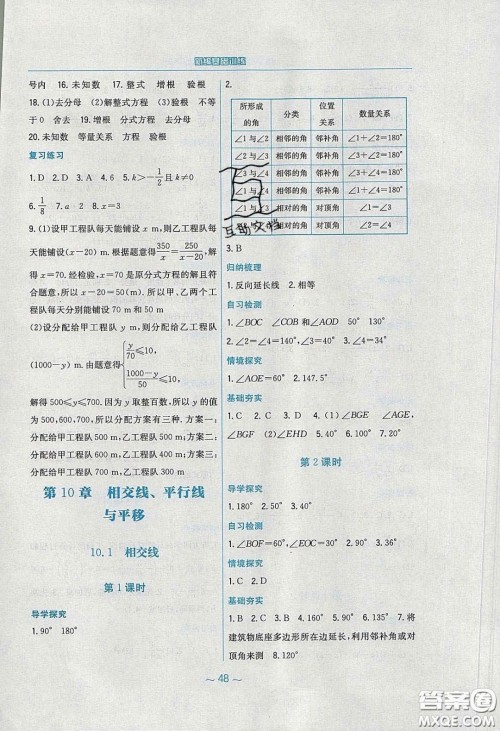 新编基础训练
号内 16. 未知数 17. 整式 增根 验根
18. (1)去分母 (2)解整式方程 (3)验根 不等
于0 舍去 19. 增根 分式方程 去分母
20. 未知数 等量关系 方程 验根
复习练习
1. D 2. D 3. A 4. 6 5. k>-1/2且k≠0
6. 1/8 7. a 2 8. x=3
9. (1)设甲工程队每天能铺设 x m,则乙工程队
每天能铺设(x-20) m. 根据题意得350/x=250/(x-20). 解
得 x=70. 经检验, x=70 是原分式方程的解且符
合题意,所以x-20=50. 所以甲、乙两个工程
队每天分别能铺设 70 m 和 50 m
(2)设分配给甲工程队 y m,则分配给乙工程队
(1000-y) m. 由题意得{y/70≤10, (1000-y)/50≤10,
解得 500≤y≤700. 因为 y 取整百数,所以 y 的值
为 500,600,700,所以分配方案有三种. 方案一:
分配给甲工程队 500 m,乙工程队 500 m;方案二:
分配给甲工程队 600 m,乙工程队 400 m;方案三:
分配给甲工程队 700 m,乙工程队 300 m
第10章 相交线、平行线
与平移
10.1 相交线
第1课时
导学探究
1. 90° 180°
2.
所形成的角 分类 位置关系 数量关系
∠1与∠2 相邻的角 邻补角 ∠1+∠2=180°
∠2与∠3 相邻的角 邻补角 ∠2+∠3=180°
∠3与∠4 相邻的角 邻补角 ∠3+∠4=180°
∠1与∠4 相邻的角 邻补角 ∠1+∠4=180°
∠1与∠3 相对的角 对顶角 ∠1=∠3
∠2与∠4 相对的角 对顶角 ∠2=∠4
互助文档
3. B
归纳梳理
1. 反向延长线 2. 相等
自习检测
1. ∠BOC ∠COB 和∠AOD 50° 130°
2. ∠2=∠4=140°,∠3=40° 3. ∠4=34°
情境探究
1. ∠AOE=60° 2. 147.5°
基础夯实
1. C 2. C 3. A 4. (1)∠BGE ∠AGE,
∠BGF (2)∠EHD 5. 40° 6. 140°
第2课时
导学探究
1. 180° 2. 50° 3. 40°
自习检测
1. D 2. ∠BOF=60°,∠EOC=30° 3. 36°
情境探究
1. C 2. D
基础夯实
1. B 2. B 3. B 4. 160° 5. 90° 6. 135° 7. 将
建筑物底座多边形所在边延长,利用邻补角或对
顶角来测 8. 120°
～ 48 ～
答案圈
MXQE.COM